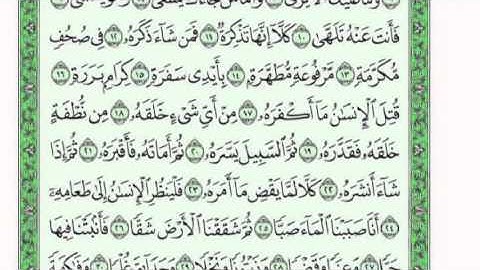 فَأَنتَ عَنْهُ تَلَهَّىٰ ١٠ كَلَّا إِنَّهَا تَذْكِرَةٌ ١١ فَمَن شَاءَ ذَكَرَهُۥ ١٢ فِي صُحُفٍ
مُّكَرَّمَةٍ ١٣ مَّرْفُوعَةٍ مُّطَهَّرَةٍ ١٤ بِأَيْدِي سَفَرَةٍ ١٥ كِرَامٍ بَرَرَةٍ ١٦
قُتِلَ ٱلْإِنسَٰنُ مَا أَكْفَرَهُۥ ١٧ مِنْ أَيِّ شَيْءٍ خَلَقَهُۥ ١٨ مِن نُّطْفَةٍ
خَلَقَهُۥ فَقَدَّرَهُۥ ١٩ ثُمَّ ٱلسَّبِيلَ يَسَّرَهُۥ ٢٠ ثُمَّ أَمَاتَهُۥ فَأَقْبَرَهُۥ ٢١ ثُمَّ إِذَا
شَاءَ أَنشَرَهُۥ ٢٢ كَلَّا لَمَّا يَقْضِ مَا أَمَرَهُۥ ٢٣ فَلْيَنظُرِ ٱلْإِنسَٰنُ إِلَىٰ طَعَامِهِۦ
٢٤ أَنَّا صَبَبْنَا ٱلْمَاءَ صَبًّا ٢٥ ثُمَّ شَقَقْنَا ٱلْأَرْضَ شَقًّا ٢٦ فَأَنۢبَتْنَا فِيهَا
حَبًّا ٢٧ وَعِنَبًا وَقَضْبًا ٢٨ وَزَيْتُونًا وَنَخْلًا ٢٩ وَحَدَائِقَ غُلْبًا ٣٠ وَفَٰكِهَةً